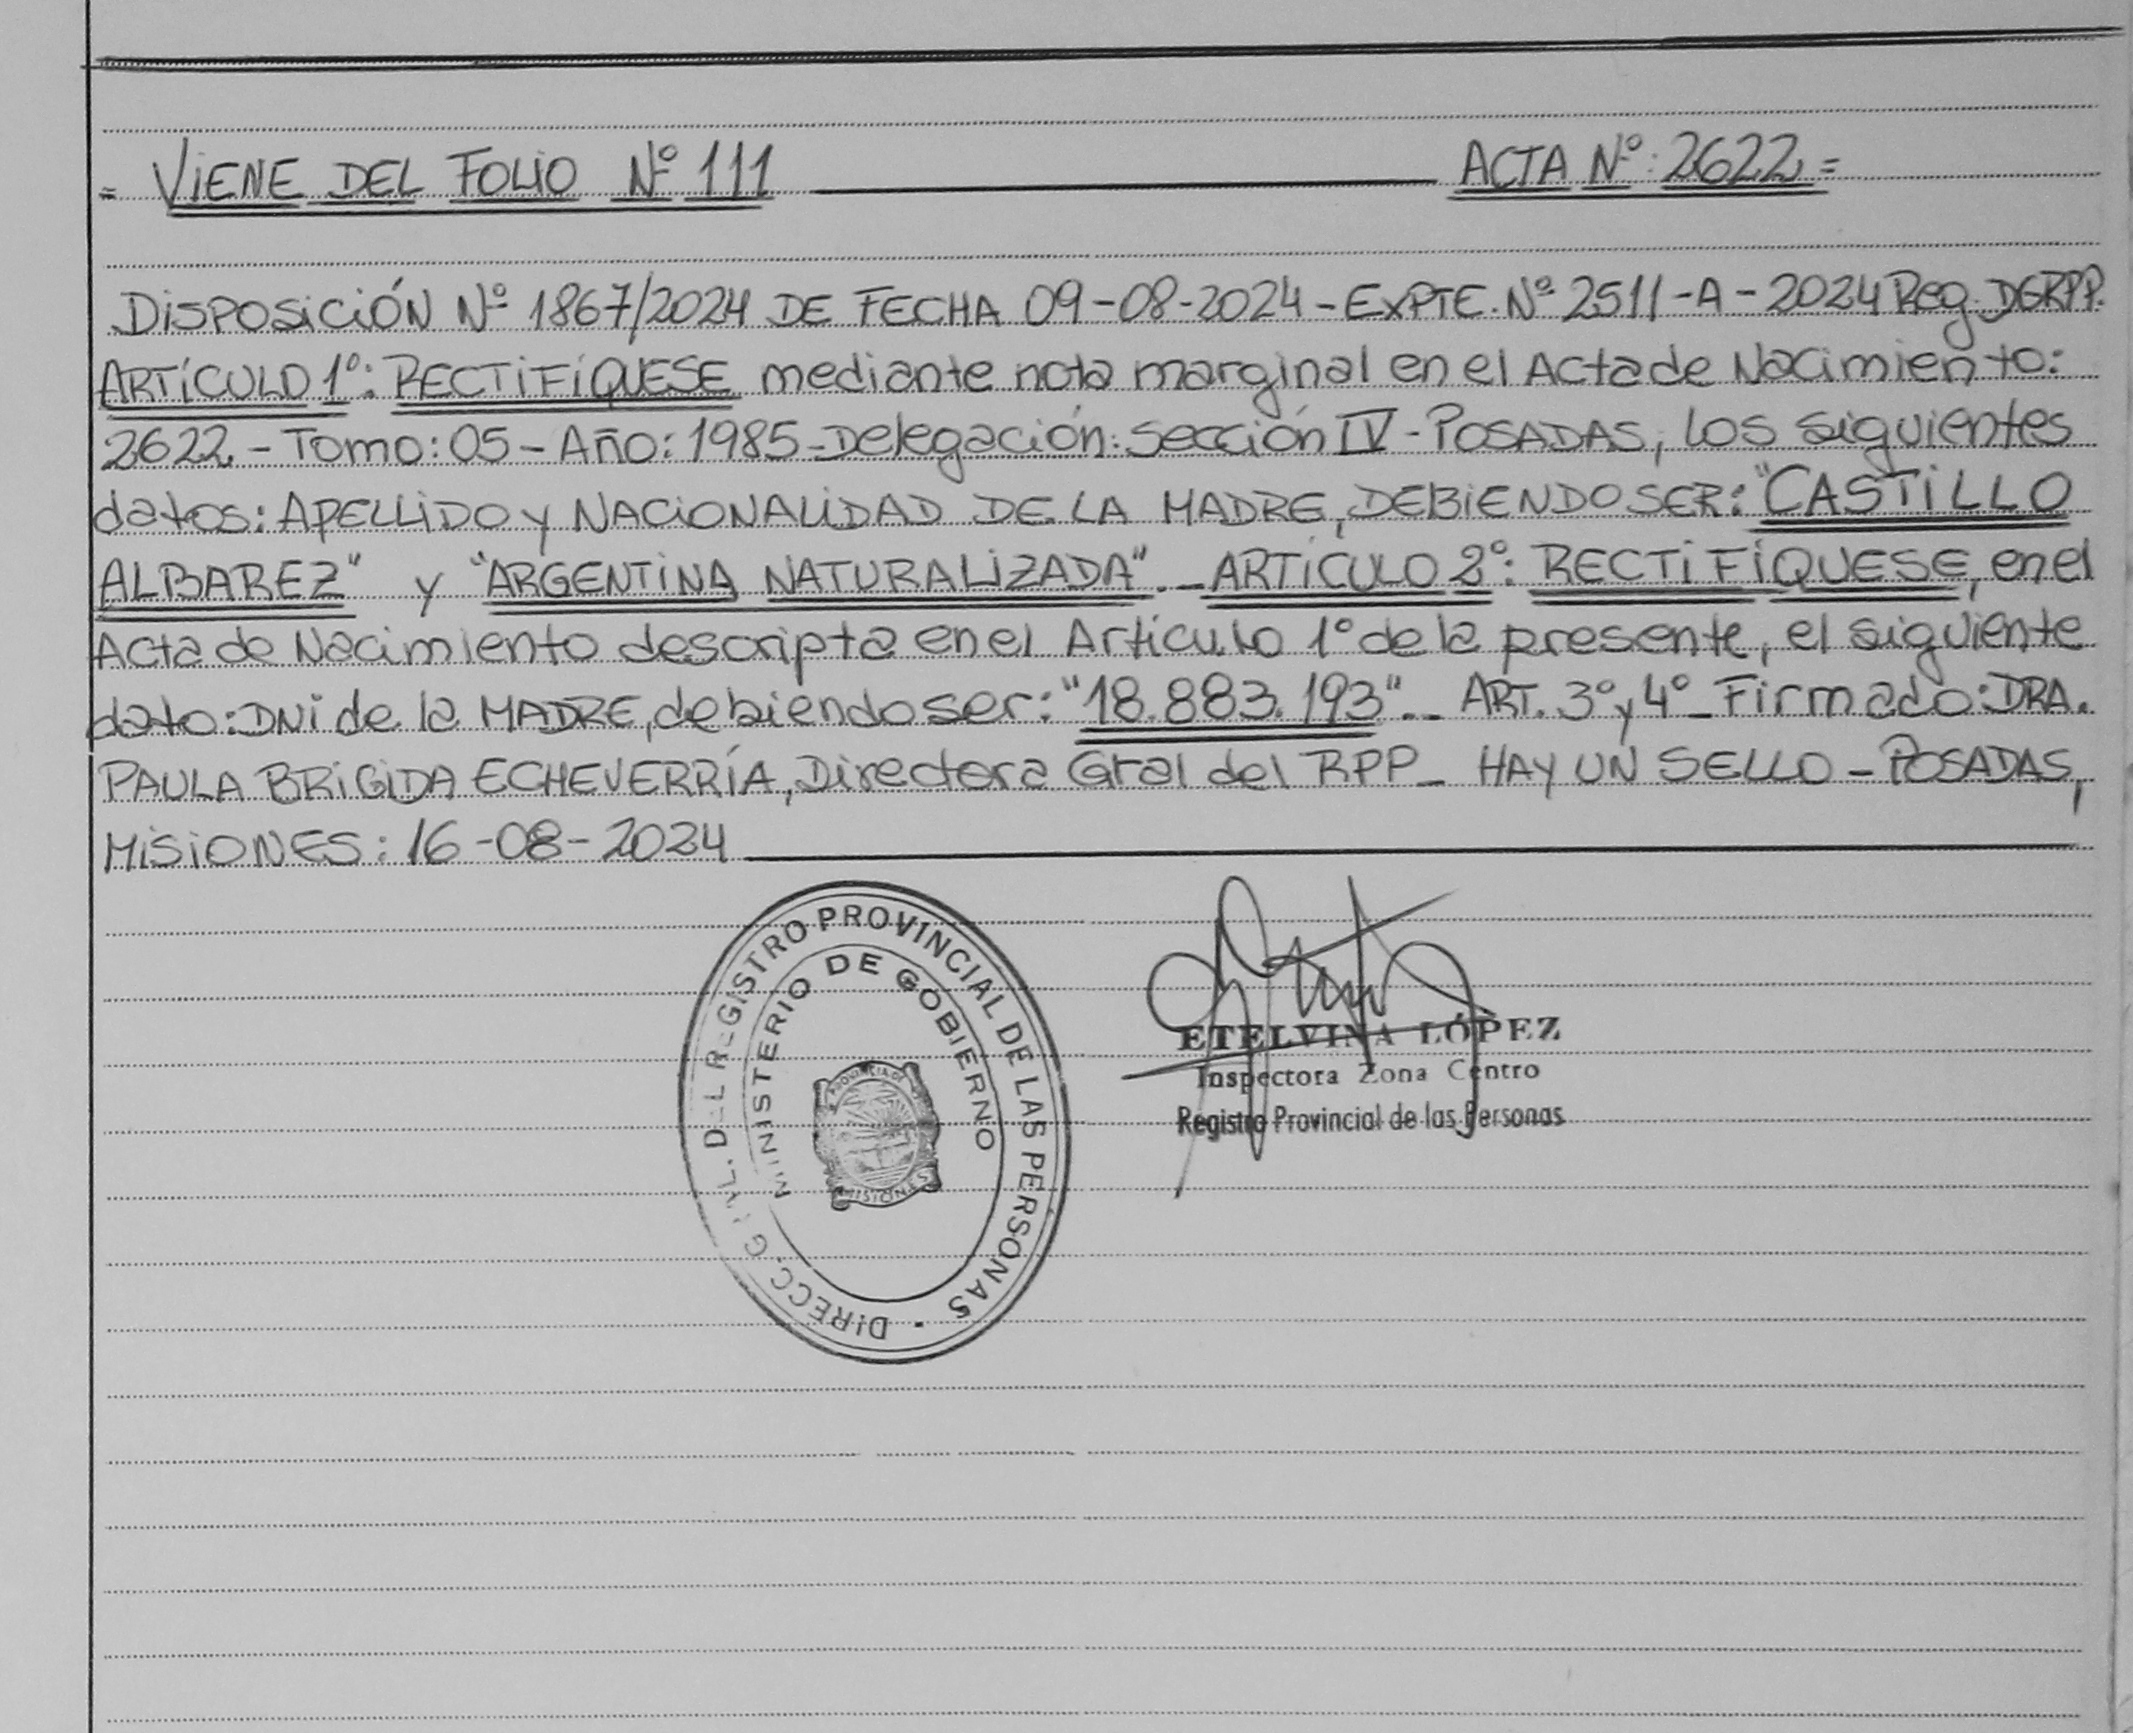 = VIENE DEL FOLIO Nº 111 ACTA Nº: 2622 =
DISPOSICIÓN Nº 1867/2024 DE FECHA 09-08-2024 - EXPTE. Nº 2511-A-2024 Reg. DGRPP.
ARTÍCULO 1º: RECTIFÍQUESE mediante nota marginal en el Acta de Nacimiento:
2622 - Tomo: 05 - Año: 1985 - Delegación: Sección IV - POSADAS, los siguientes
datos: APELLIDO y NACIONALIDAD DE LA MADRE, DEBIENDO SER: "CASTILLO
ALBAREZ" y "ARGENTINA NATURALIZADA". - ARTÍCULO 2º: RECTIFÍQUESE, en el
Acta de Nacimiento descripta en el Artículo 1º de la presente, el siguiente
dato: DNI de la MADRE, debiendo ser: "18.883.193". - ART. 3º y 4º - Firmado: DRA.
PAULA BRIGIDA ECHEVERRÍA, Directora Gral del RPP - HAY UN SELLO - POSADAS,
MISIONES: 16-08-2024
DIRECC. GRAL. DEL REGISTRO PROVINCIAL DE LAS PERSONAS
MINISTERIO DE GOBIERNO
PROVINCIA DE
MISIONES
ETELVINA LÓPEZ
Inspectora Zona Centro
Registro Provincial de las Personas